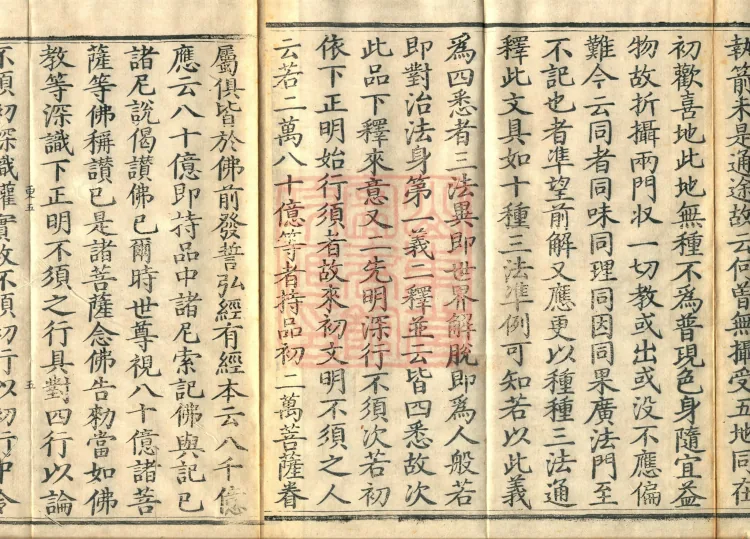 執箭未是通途故云何曾無攝受五地同在
初歡喜地此地無種不為普現色身隨宜益
物故折攝兩門収一切教或出或没不應偏
難今云同者同味同理同因同果廣法門至
不記也者準望前解又應更以種種三法通
釋此文具如十種三法準例可知若以此義
為四悉者三法異即世界解脫即為人般若
即對治法身第一義二釋並云皆四悉故次
此品下釋來意又二先明深行不須次若初
依下正明始行須者故來初文明不須之人
云若二萬八十億等者持品初二萬菩薩眷
屬俱皆於佛前發誓弘經有經本云八千億
應云八十億即持品中諸尼索記佛與記已
諸尼說偈讃佛已爾時世尊視八十億諸菩
薩等佛稱讃已是諸菩薩念佛告勑當如佛
教等深識下正明不須之行具對四行以論
東五
五
不須初深識權實故不須初行以初行中令